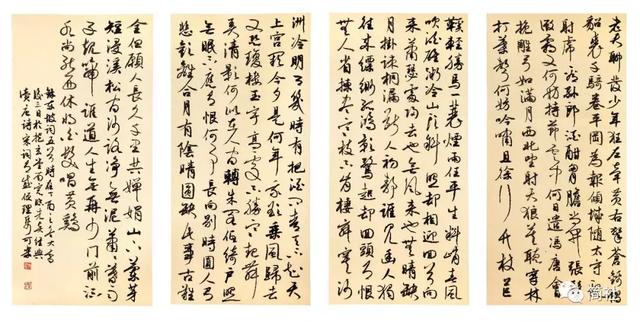 老夫聊發少年狂左牽黃右擎蒼錦帽
貂裘千騎卷平岡為報傾城隨太守親
射虎看孫郎酒酣胸膽尚開張鬢
微霜又何妨持節雲中何日遣馮唐會
挽雕弓如滿月西北望射天狼莫聽穿林
打葉聲何妨吟嘯且徐行竹杖芒
鞋輕勝馬一蓑煙雨任平生料峭春風
吹酒醒微冷山頭斜照却相迎回首向
來蕭瑟處歸去也無風雨也無晴缺
月掛疏桐漏斷人初靜誰見幽人獨
往來縹緲孤鴻影驚起却回頭有恨
無人省揀盡寒枝不肯棲寂寞沙
洲冷明月幾時有把酒問青天不知天
上宮闕今夕是何年我欲乘風歸去
又恐瓊樓玉宇高處不勝寒起舞
弄清影何似在人間轉朱閣低綺戶照
無眠不應有恨何事長向別時圓人有
悲歡離合月有陰晴圓缺此事古難
全但願人長久千里共嬋娟山下蘭芽
短浸溪松間沙路淨無泥蕭蕭暮雨
子規啼誰道人生無再少門前流
水尚能西休將白髮唱黃雞
蘇東坡詞五首時在丁酉